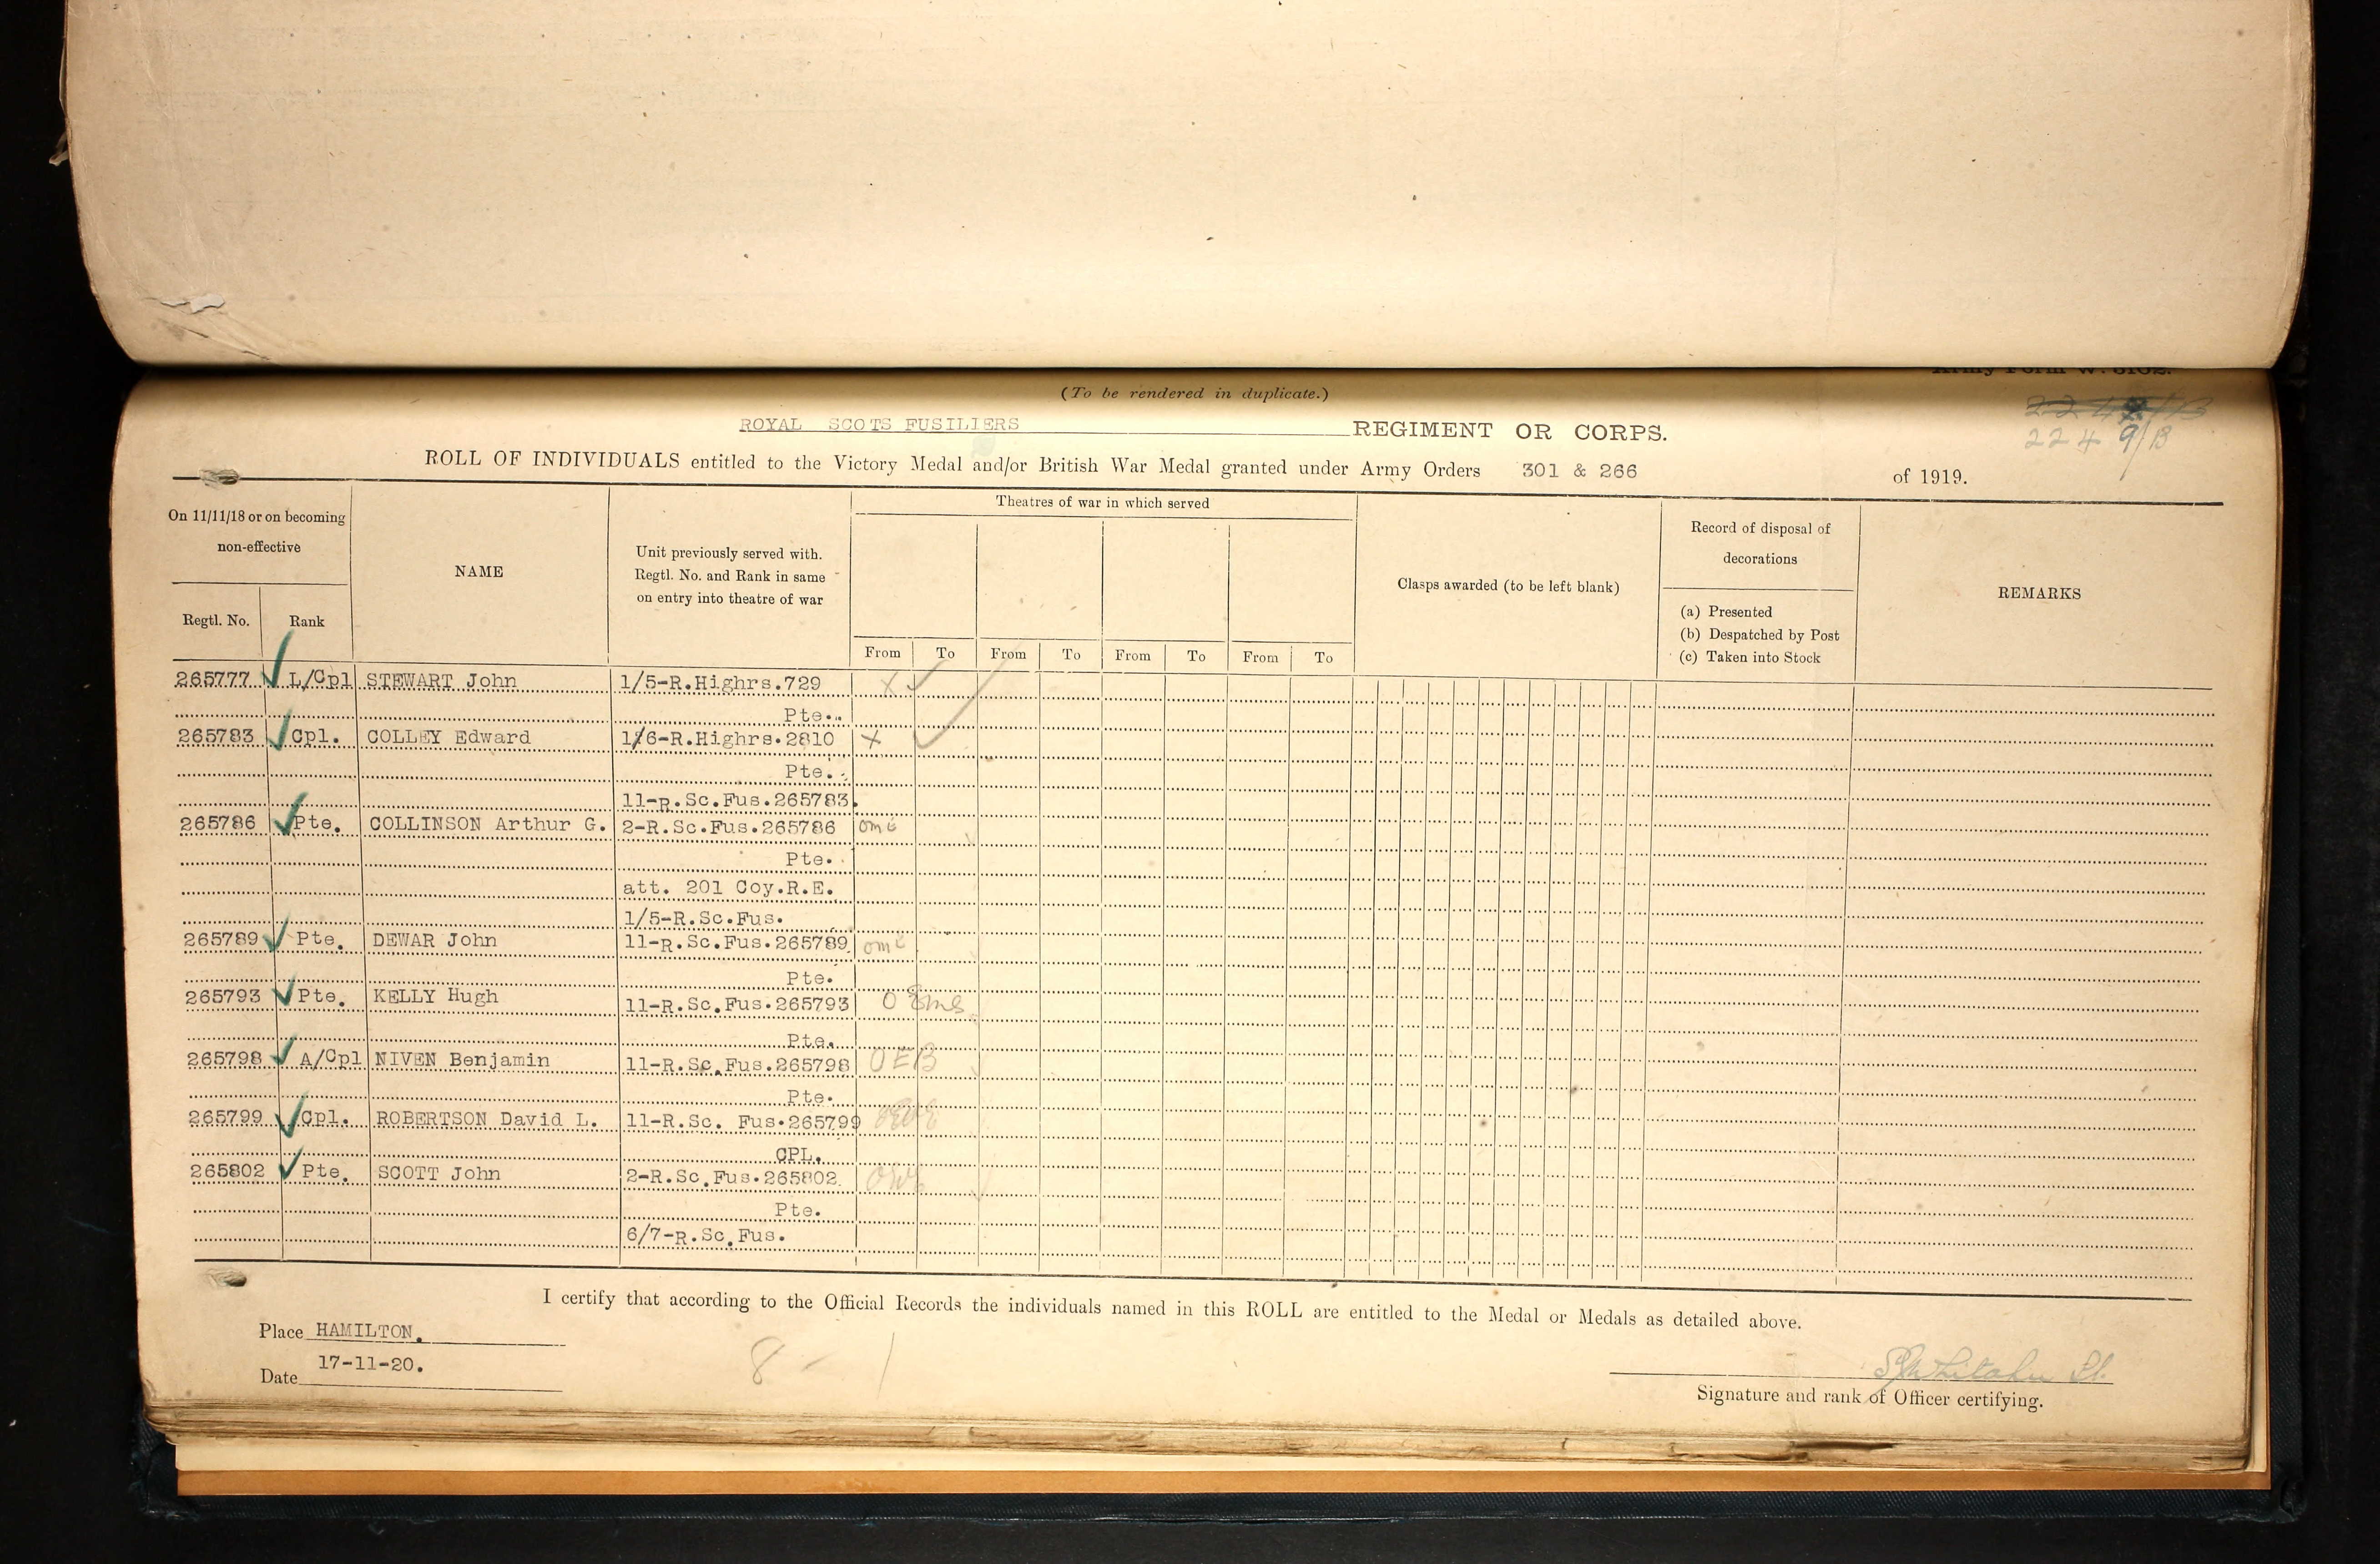 Army Form W. 5102.
(To be rendered in duplicate.)
2249/13
ROYAL SCOTS FUSILIERS REGIMENT OR CORPS.
ROLL OF INDIVIDUALS entitled to the Victory Medal and/or British War Medal granted under Army Orders 301 & 266 of 1919.
On 11/11/18 or on becoming non-effective
Regtl. No. Rank
NAME
Unit previously served with. Regtl. No. and Rank in same on entry into theatre of war
Theatres of war in which served
From To From To From To From To
Clasps awarded (to be left blank)
Record of disposal of decorations
(a) Presented
(b) Despatched by Post
(c) Taken into Stock
REMARKS
265777 L/Cpl STEWART John 1/5-R.Highrs.729 X
Pte.
265783 Cpl. COLLEY Edward 1/6-R.Highrs.2810 X
Pte.
11-R.Sc.Fus.265783.
265786 Pte. COLLINSON Arthur G. 2-R.Sc.Fus.265786
Pte.
att. 201 Coy.R.E.
1/5-R.Sc.Fus.
265789 Pte. DEWAR John 11-R.Sc.Fus.265789
Pte.
265793 Pte. KELLY Hugh 11-R.Sc.Fus.265793
Pte.
265798 A/Cpl NIVEN Benjamin 11-R.Sc.Fus.265798 OEB
Pte.
265799 Cpl. ROBERTSON David L. 11-R.Sc. Fus.265799
CPL.
265802 Pte. SCOTT John 2-R.Sc.Fus.265802.
Pte.
6/7-R.Sc.Fus.
I certify that according to the Official Records the individuals named in this ROLL are entitled to the Medal or Medals as detailed above.
Place HAMILTON.
Date 17-11-20.
8 - /
Signature and rank of Officer certifying.